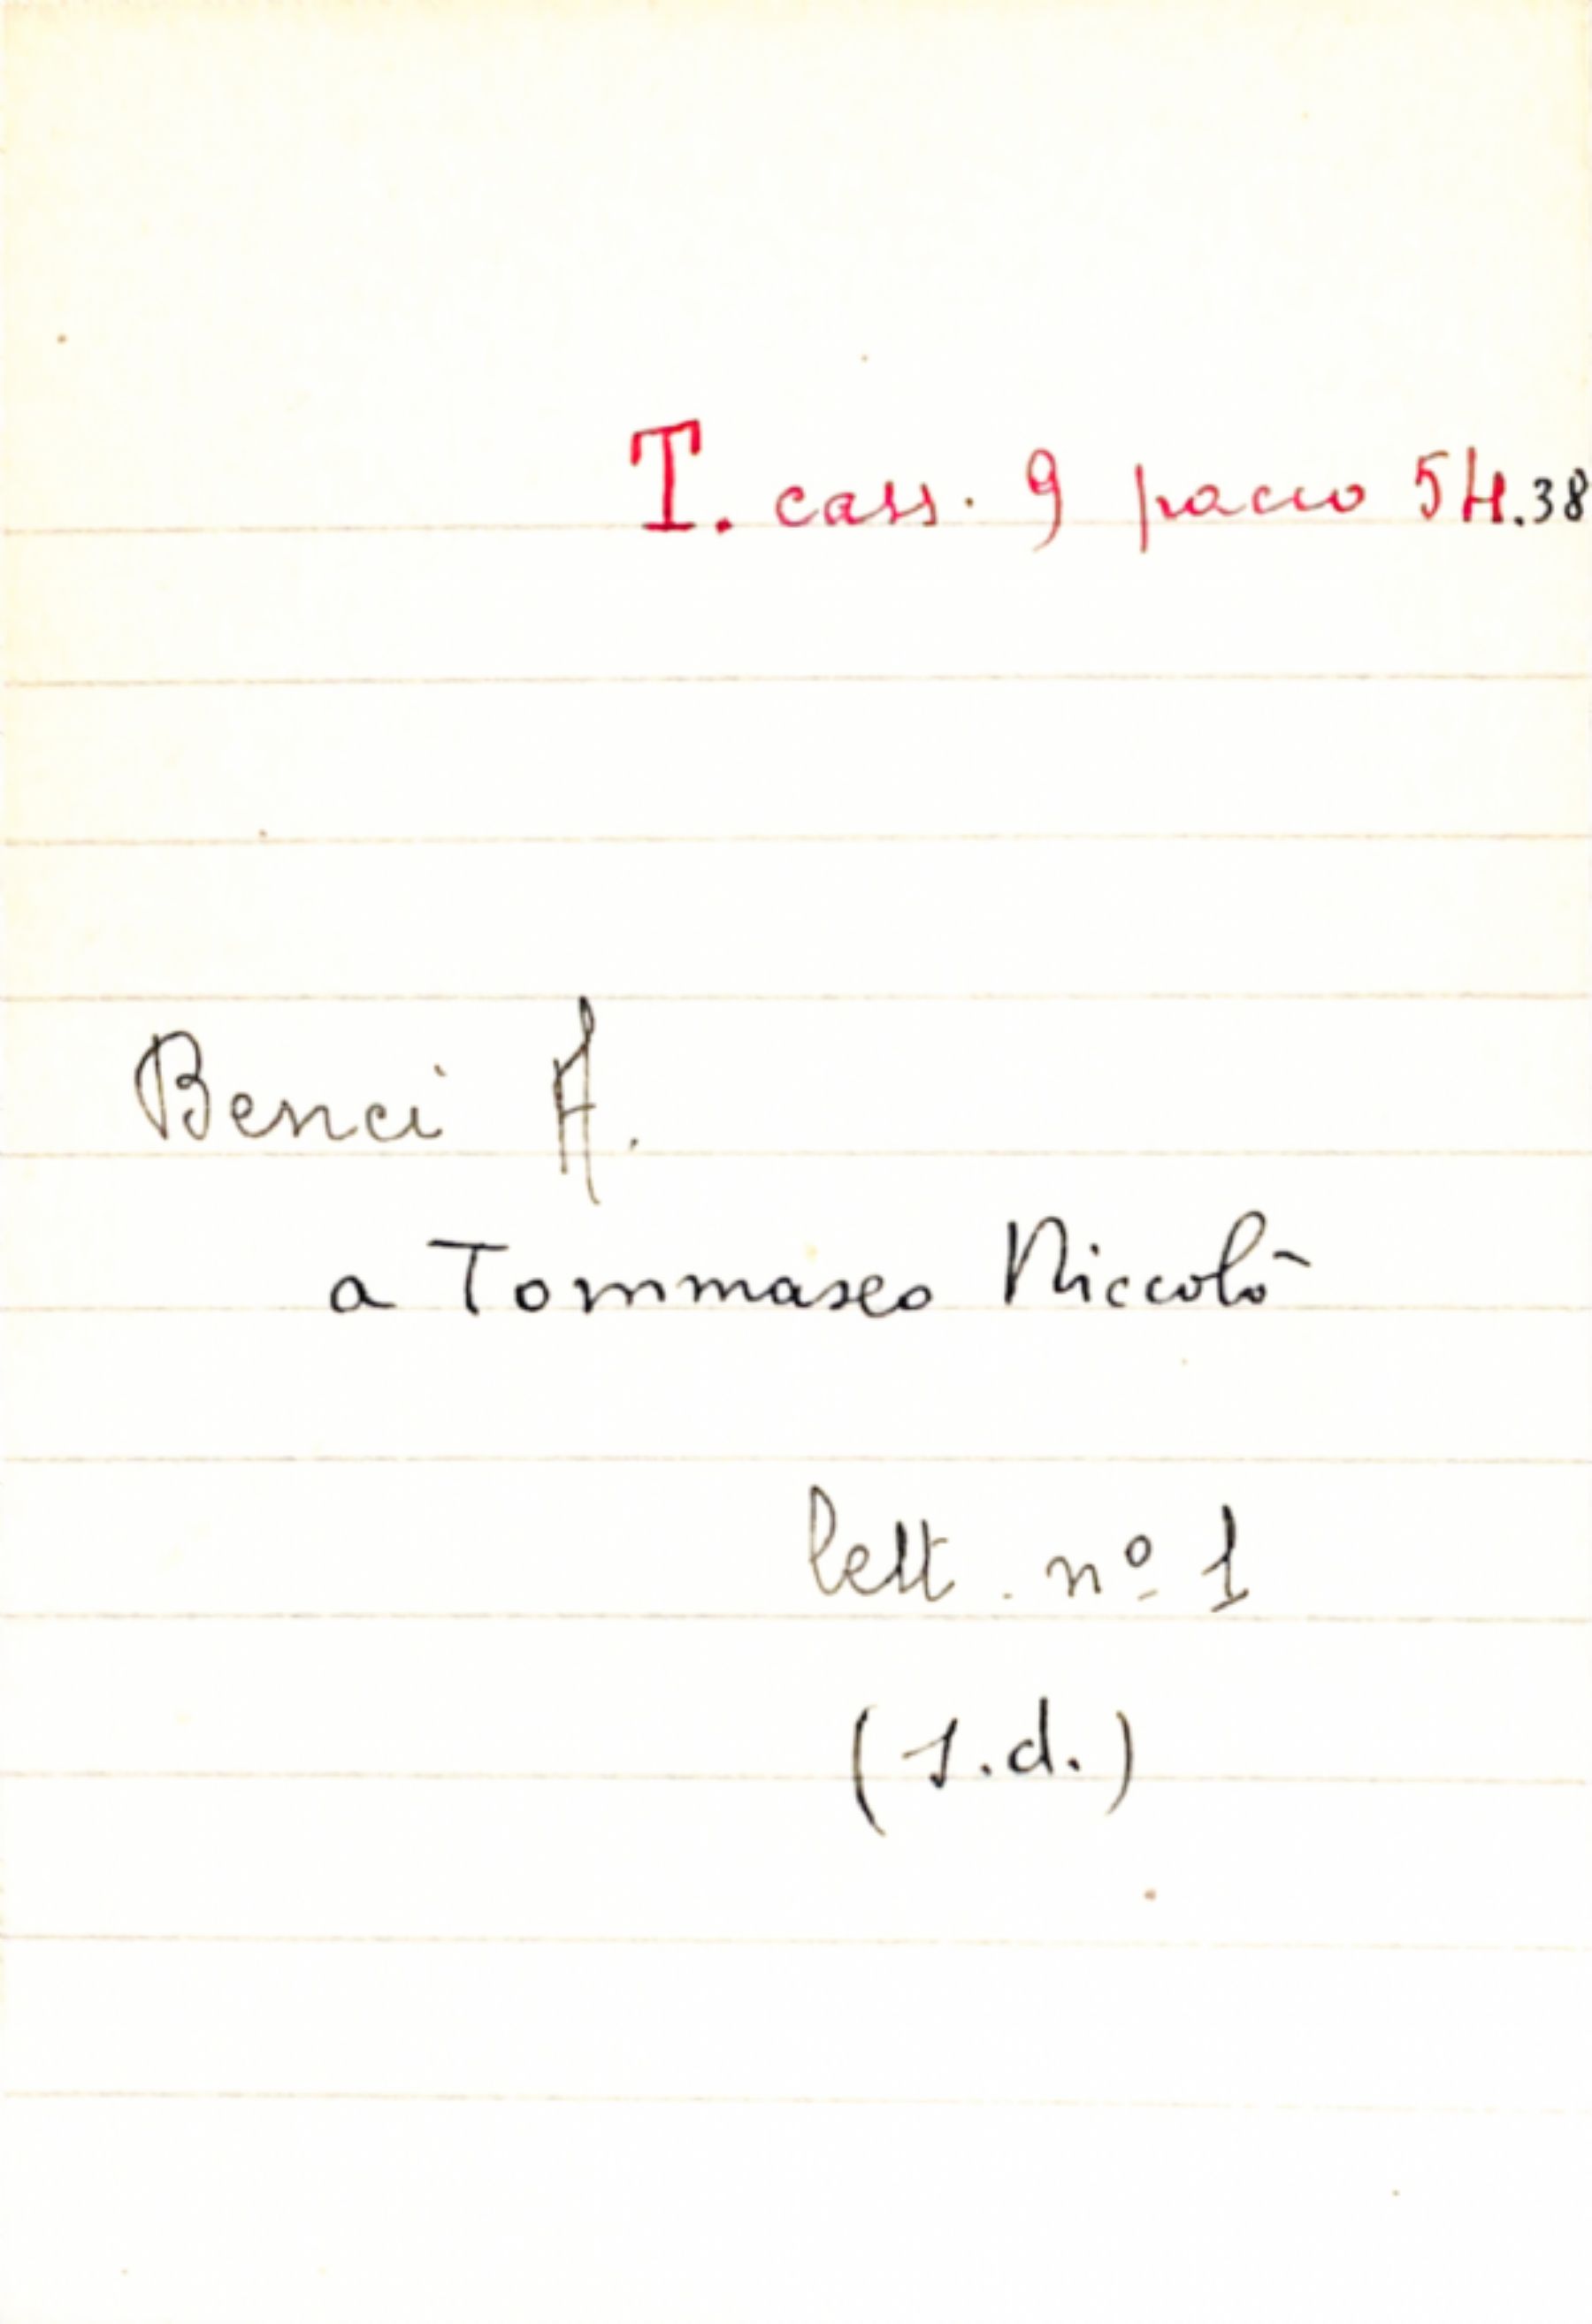 T. cass. 9 pacco 54.38
Benci A.
a Tommaseo Niccolò
lett. nº 1
(s.d.)